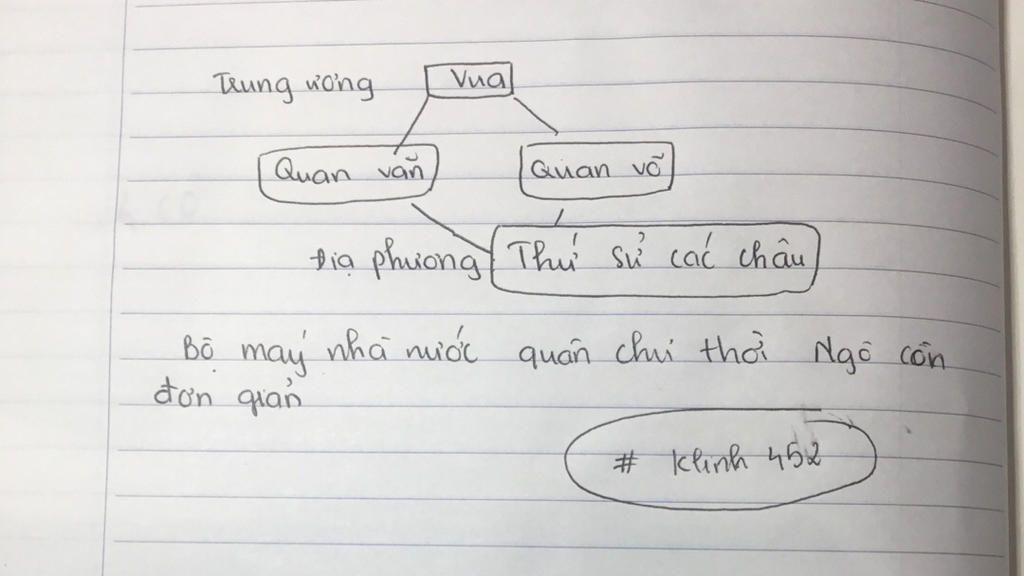 Trung ương Vua
Quan văn Quan võ
Địa phương Thứ sử các châu
Bộ máy nhà nước quân chủ thời Ngô còn
đơn giản
# Klinh 452